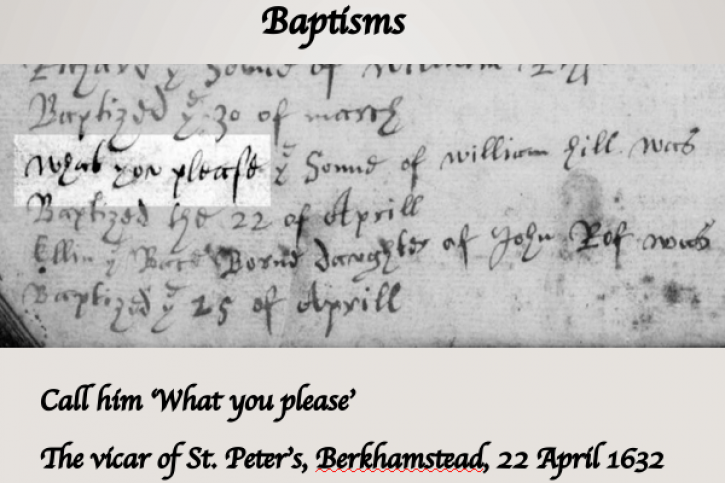 Baptisms
Richard yͤ Sonne of William
Baptized yͤ 30 of march
What you please yͤ Sonne of william hill was
Baptized the 22 of Aprill
Ellin yͤ Base Borne daughter of John Rof was
Baptized yͤ 25 of Aprill
Call him ‘What you please’
The vicar of St. Peter’s, Berkhamstead, 22 April 1632